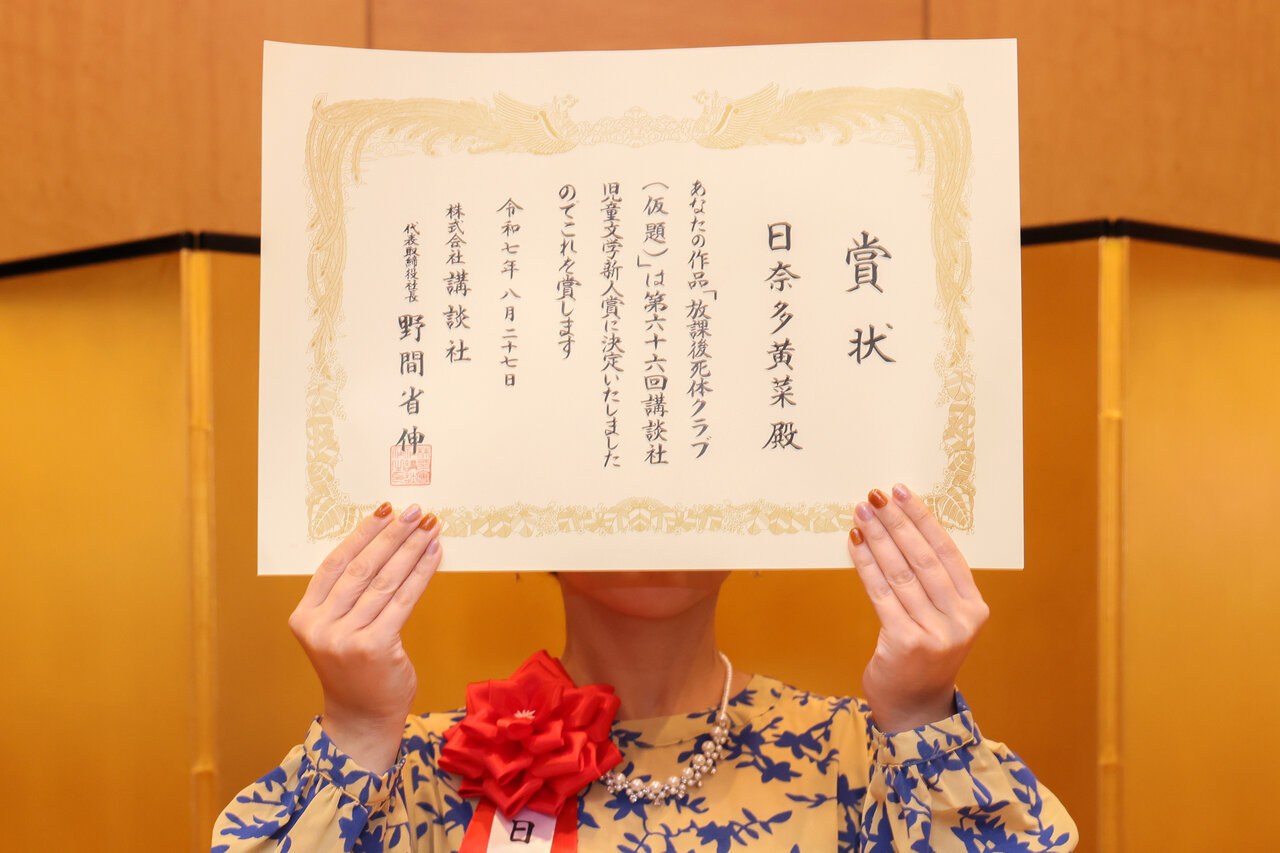 賞状
日奈多黄菜殿
あなたの作品「放課後死体クラブ
(仮題)」は第六十六回講談社
児童文学新人賞に決定いたしました
のでこれを賞します
令和七年八月二十七日
株式会社講談社
代表取締役社長 野間省伸
日